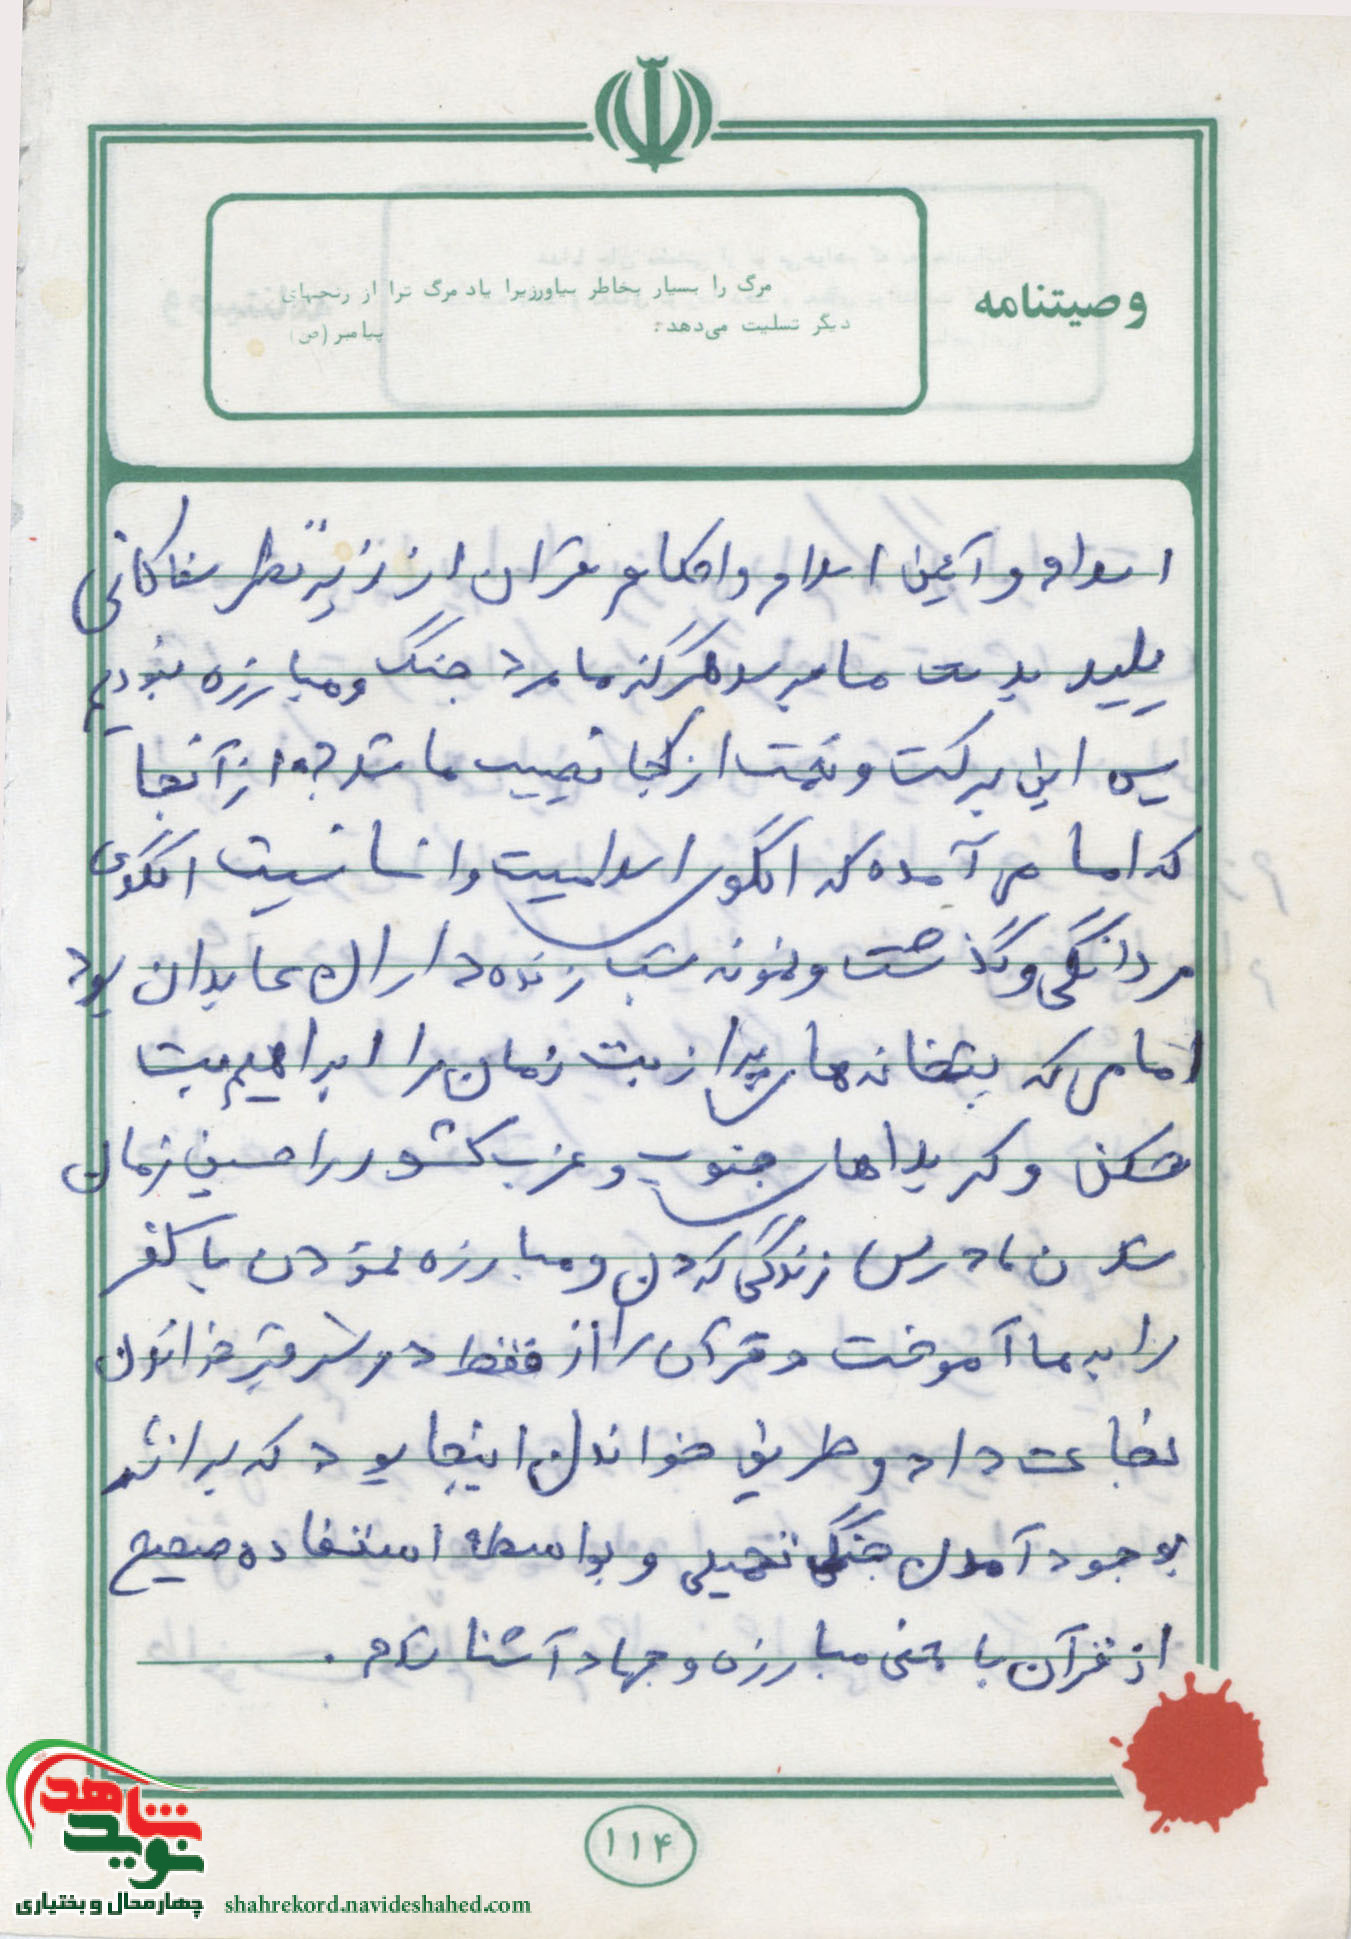 وصیتنامه
مرگ را بسیار بخاطر بیاورزیرا یاد مرگ ترا از رنجهای
دیگر تسلیت می‌دهد.
پیامبر (ص)
اسلام و آئین اسلام و احکام قرآن از زیر نظر سفاکانی
پلید بدست ما میرسد هرگز ما مرد جنگ و مبارزه نبودیم
پس این برکت و نعمت از کجا نصیب ما شد ؟ از آنجا
که امام آمده که الگوی اسلامیت و انسانیت الگوی
مردانگی و گذشت و نمونه شب زنده دار عابدان بود
امامی که بتخانه های پر از بت زمان را ابراهیم بت
شکن و کربلاهای جنوب و غرب کشور را حسین زمان
شدن مادرس زندگی کردن و مبارزه نمودن با کفر
را به ما آموخت و قرآن را از فقط در سر قبر خواندن
نجات داد و طریق خواندن اینجا بود که بر اثر
بوجود آمدن جنگ تحمیلی و بواسطه استفاده صحیح
از قرآن با مبارزه و جهاد آشنا .
۱۱۴
نوید شاهد
چهارمحال و بختیاری
shahrekord.navideshahed.com